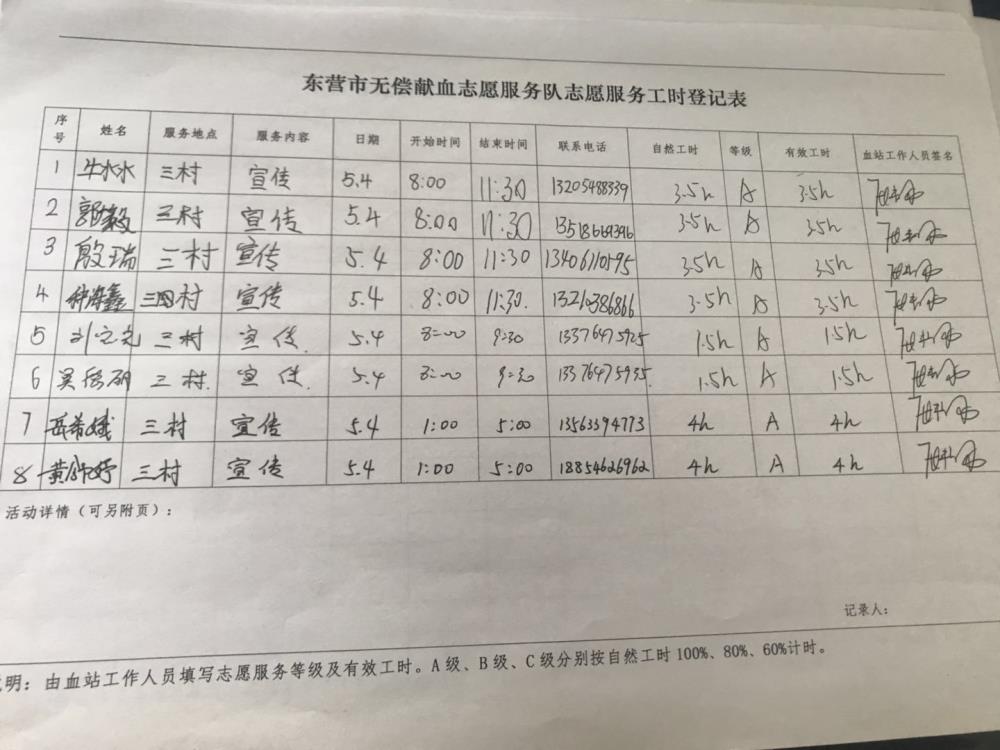 东营市无偿献血志愿服务队志愿服务工时登记表
序号 姓名 服务地点 服务内容 日期 开始时间 结束时间 联系电话 自然工时 等级 有效工时 血站工作人员签名
1 牛水水 三村 宣传 5.4 8:00 11:30 13205488339 3.5h A 3.5h
2 三村 宣传 5.4 8:00 11:30 3.5h A 3.5h
3 殷瑞 三村 宣传 5.4 8:00 11:30 13406110595 3.5h A 3.5h
4 村 宣传 5.4 8:00 11:30. 13210386866 3.5h A 3.5h
5 三村 宣传. 5.4 8:00 9:30 13376475925 1.5h A 1.5h
6 三村. 宣传. 5.4 8:00 9:30 13376475935. 1.5h A 1.5h
7 岳希娥 三村 宣传 5.4 1:00 5:00 13563394773 4h A 4h
8 三村 宣传 5.4 1:00 5:00 18854626962 4h A 4h
活动详情(可另附页):
记录人:
明:由血站工作人员填写志愿服务等级及有效工时。A级、B级、C级分别按自然工时100%、80%、60%计时。